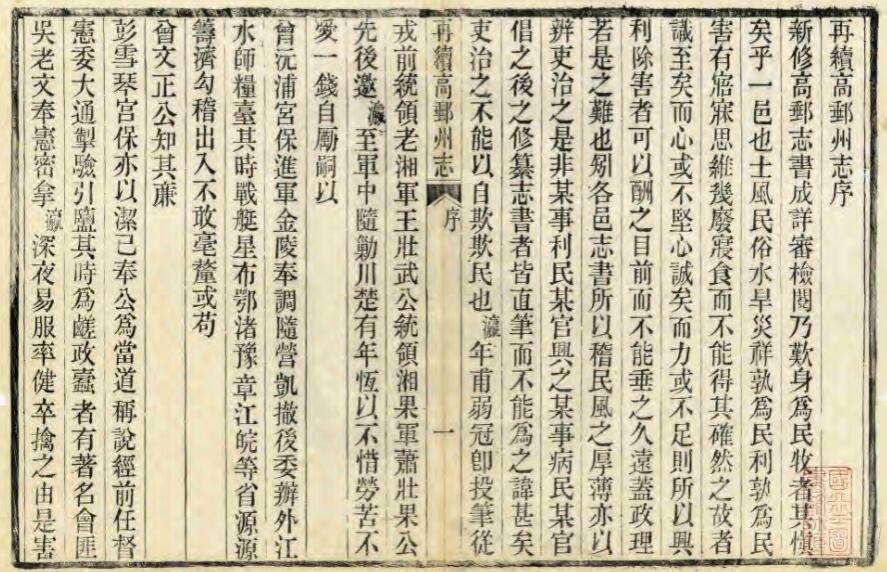 再續高郵州志序
新修高郵志書成詳審檢閱乃歎身爲民牧者其慎
矣乎一邑也士風民俗水旱災祥孰爲民利孰爲民
害有寤寐思維幾廢寢食而不能得其確然之故者
識至矣而心或不堅心誠矣而力或不足則所以興
利除害者可以酬之目前而不能垂之久遠蓋政理
若是之難也矧各邑志書所以稽民風之厚薄亦以
辨吏治之是非某事利民某官興之某事病民某官
倡之後之修纂志書者皆直筆而不能爲之諱甚矣
吏治之不能以自欺欺民也瀛年甫弱冠卽投筆從
再續高郵州志 序 一
戎前統領老湘軍王壯武公統領湘果軍蕭壯果公
先後邀瀛至軍中隨勦川楚有年恆以不惜勞苦不
愛一錢自勵嗣以
曾沅浦宮保進軍金陵奉調隨營凱撤後委辦外江
水師糧臺其時戰艇星布鄂渚豫章江皖等省源源
籌濟勾稽出入不敢毫釐或苟
曾文正公知其廉
彭雪琴宮保亦以潔己奉公爲當道稱說經前任督
憲委大通掣驗引鹽其時爲鹺政蠹者有著名會匪
吳老文奉憲密拿瀛深夜易服率健卒擒之由是害